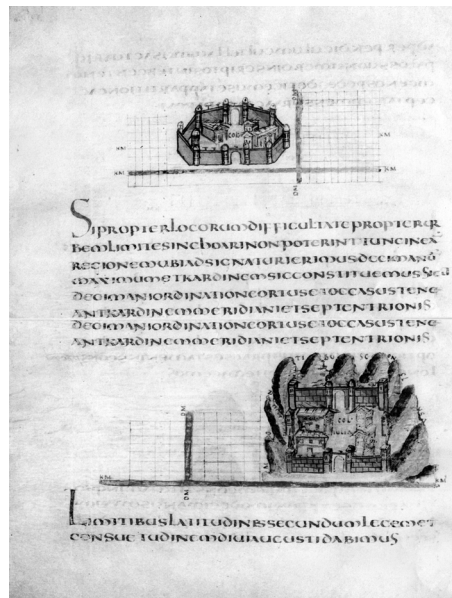 COL
SIPROPTERLOCORUMDIFFICULTATEPROPTERUR
BEMLIMITESINCHOARINONPOTERINTTUNCINEA
REGIONEMUBIADSIGNATURIERIMUSDECIMANŪ
MAXIMUMETKARDINEMSICCONSTITUEMUS
DECIMANIORDINATIONEORTUSETOCCASUSTENE
ANTKARDINEMMERIDIANIETSEPTENTRIONIS
DECIMANIORDINATIONEORTUSETOCCASUSTENE
ANTKARDINEMMERIDIANIETSEPTENTRIONIS
COL
IULIA
LIMITIBUSLATITUDINESSECUNDUMLEGEMET
CONSUETUDINEMDIUIAUGUSTIDABIMUS